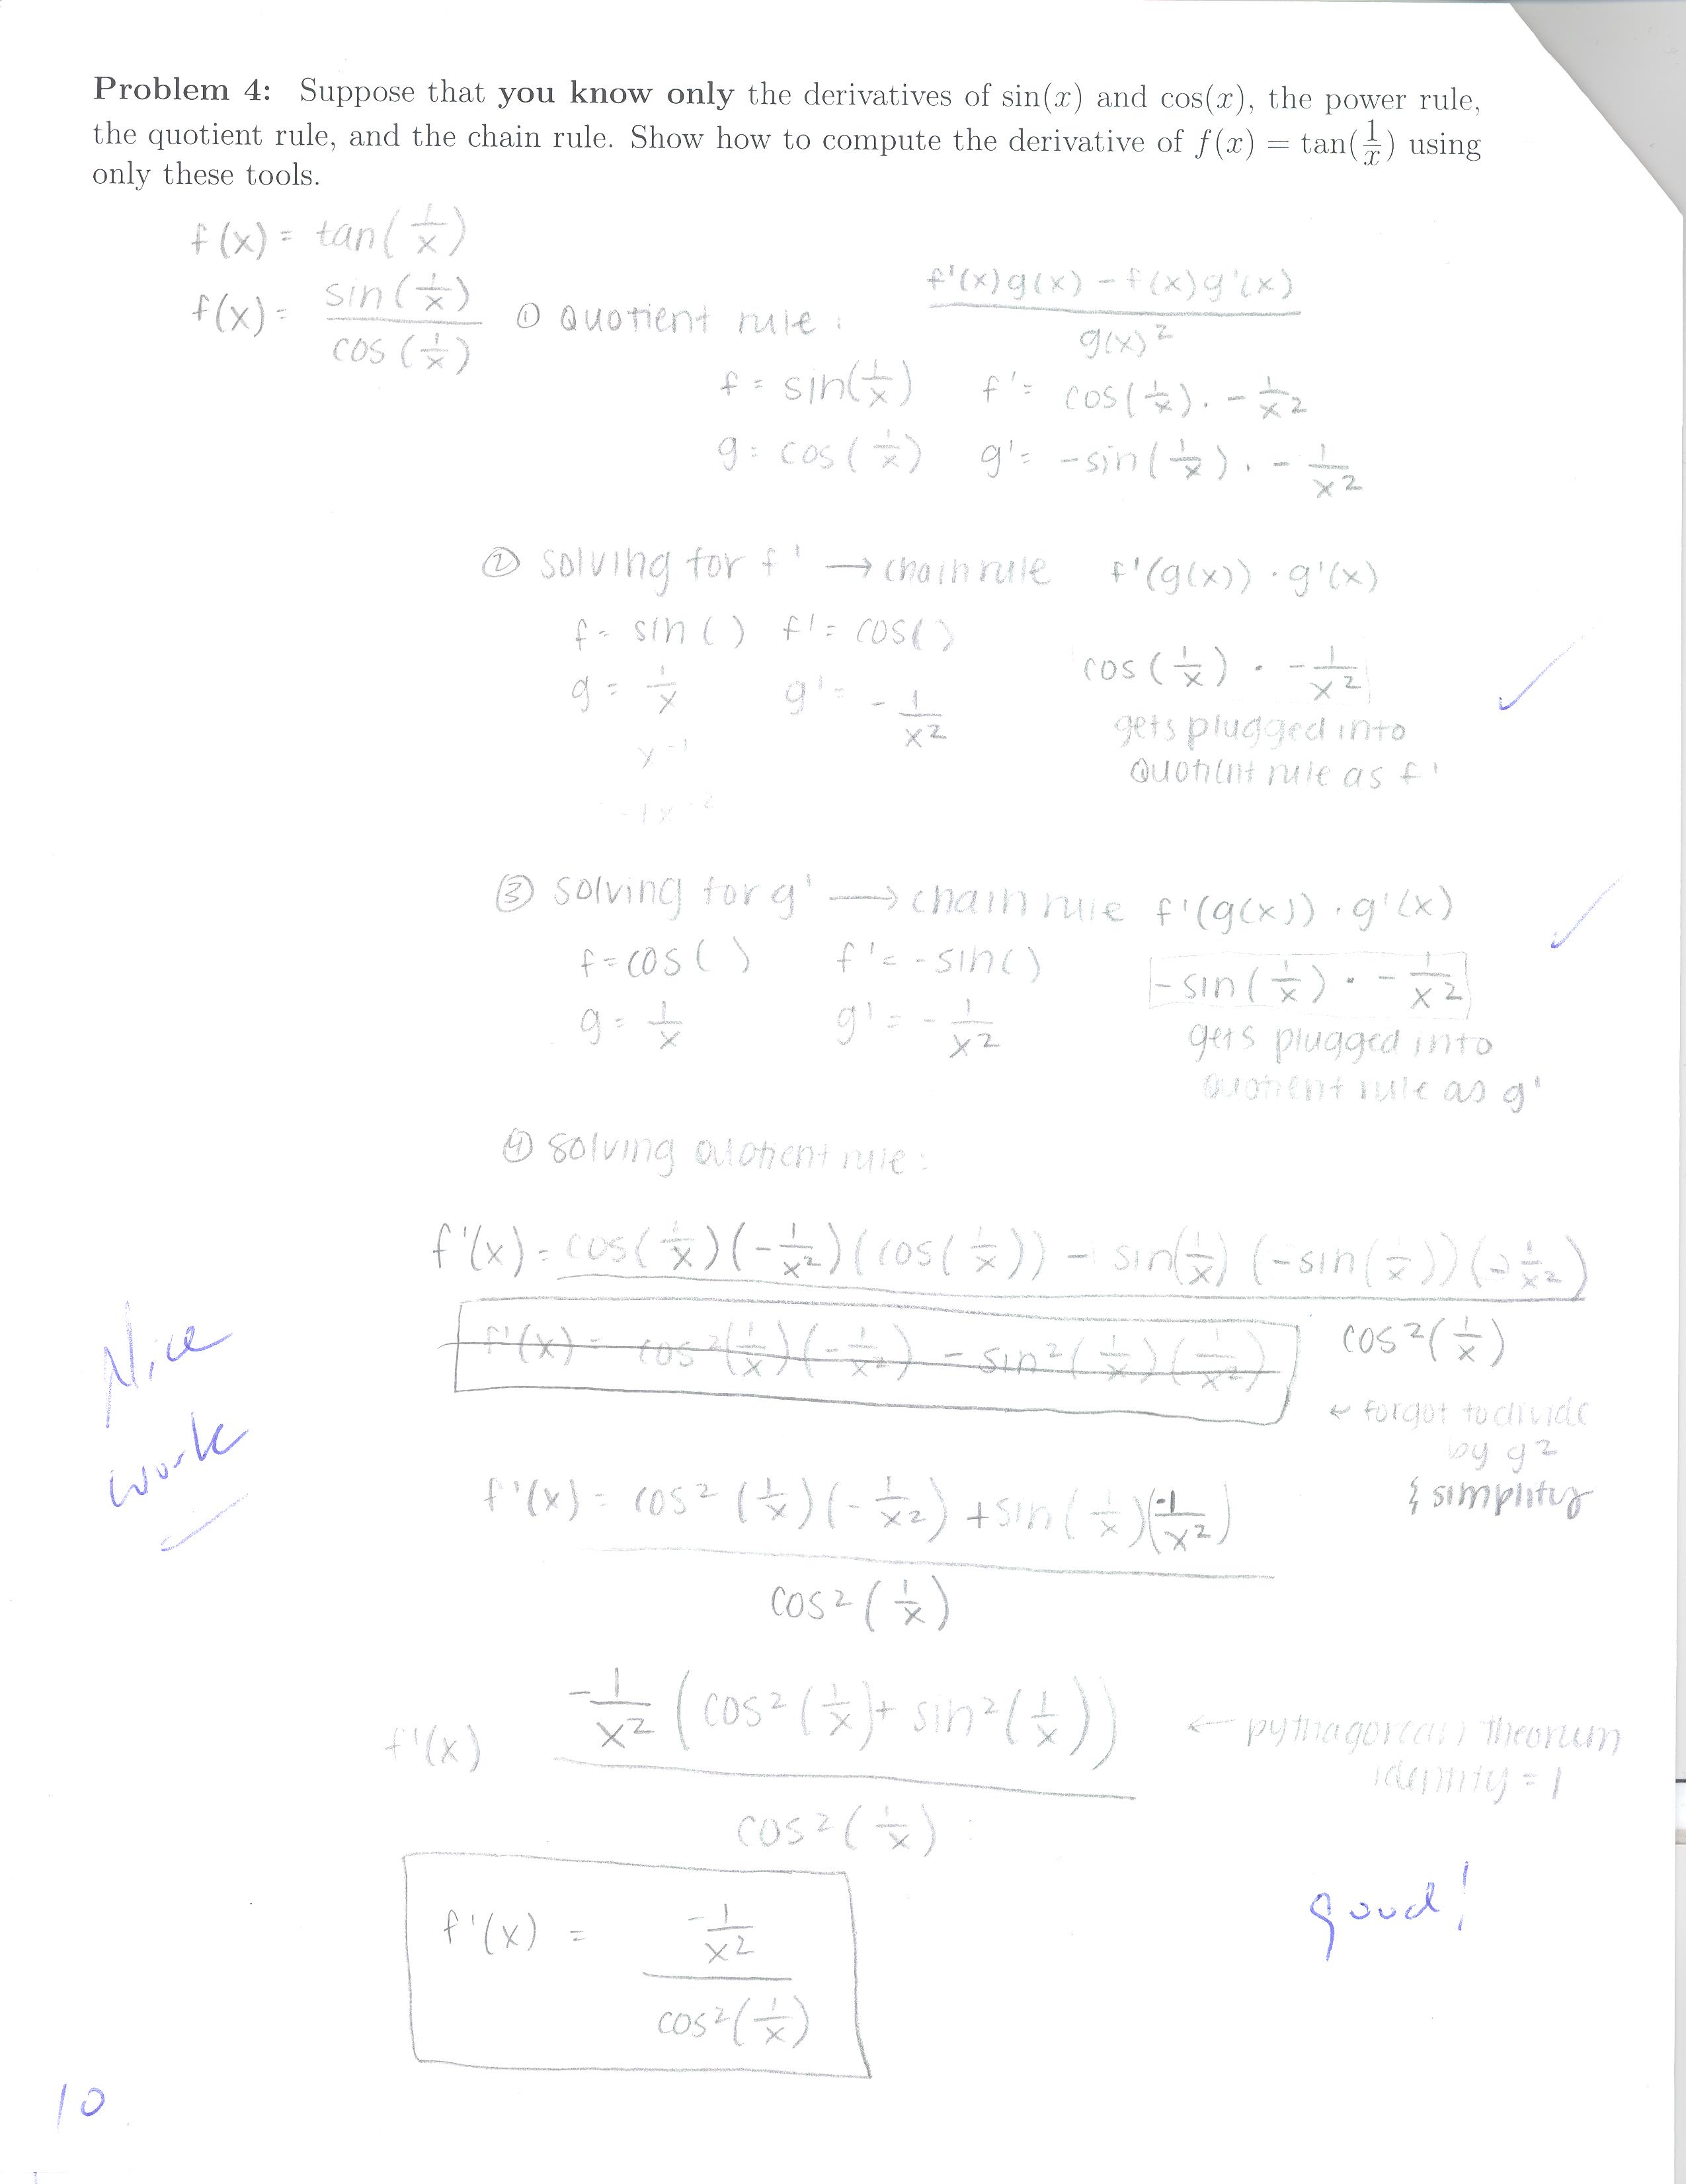 Problem 4: Suppose that you know only the derivatives of sin(x) and cos(x), the power rule,
the quotient rule, and the chain rule. Show how to compute the derivative of f(x) = tan(1/x) using
only these tools.
f(x) = tan(1/x)
f(x) = sin(1/x) / cos(1/x)
① Quotient rule: f'(x)g(x) - f(x)g'(x) / g(x)²
f = sin(1/x) f' = cos(1/x) · -1/x²
g = cos(1/x) g' = -sin(1/x) · -1/x²
② solving for f' → chain rule f'(g(x)) · g'(x)
f = sin() f' = cos()
cos(1/x) · -1/x²
g = 1/x g' = -1/x²
gets plugged into
x⁻¹
quotient rule as f'
-1x⁻²
③ solving for g' → chain rule f'(g(x)) · g'(x)
f = cos() f' = -sin()
-sin(1/x) · -1/x²
g = 1/x g' = -1/x²
gets plugged into
quotient rule as g'
④ solving quotient rule:
f'(x) = cos(1/x)(-1/x²)(cos(1/x)) - sin(1/x)(-sin(1/x))(-1/x²) / cos²(1/x)
f'(x) = cos²(1/x)(-1/x²) - sin²(1/x)(1/x²)
← forgot to divide
by g²
& simplify
Nice
work
f'(x) = cos²(1/x)(-1/x²) + sin(1/x)(-1/x²) / cos²(1/x)
f'(x) -1/x² (cos²(1/x) + sin²(1/x)) / cos²(1/x)
← pythagorean theorum
identity = 1
f'(x) = -1/x² / cos²(1/x)
good!
10